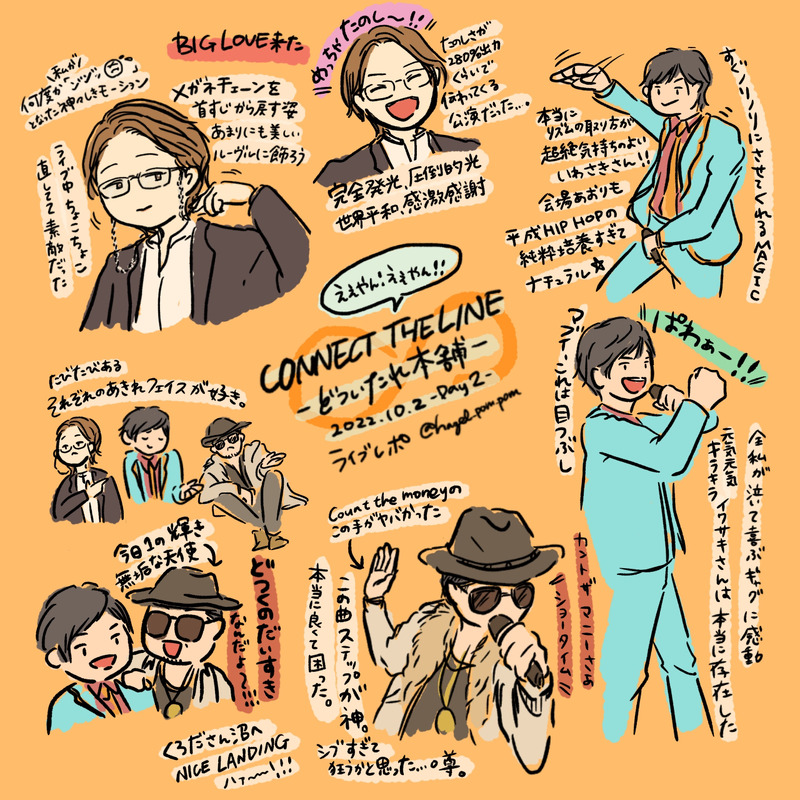 BIG LOVE来た
私が
何度か“ジッ”
となった神々しきモーション
メガネチェーンを
首すじから戻す姿
あまりにも美しい
ルーヴルに飾ろう
ライブ中ちょこちょこ
直してて素敵だった
めっちゃたのし〜!!
たのしさが
280%出力
くらいで
伝わってくる
公演だった…。
完全発光、圧倒的光
世界平和、感激感謝
すぐノリノリにさせてくれるMAGIC
本当に
リズムの取り方が
超絶気持ちのよい
いわさきさん!!
会場あおりも
平成HIP HOPの
純粋培養すぎて
ナチュラル☆
ええやん!ええやん!!
CONNECT THE LINE
-どついたれ本舗-
2022.10.2 -Day2-
ライブレポ @hagel_pom_pom
たびたびある
それぞれのあきれフェイスが好き。
ぱわぁー!!
アッ…これは目つぶし
全私が泣いて喜ぶギャグに感動
元気元気
キラキライワサキさんは本当に存在した
Count the moneyの
この手がヤバかった
カントザマニーさぁ
ショータイム
この曲ステップが神。
本当に良くて困った。
シブすぎて
狂うかと思った…。尊。
今日1の輝き
無垢な天使
どつくのだいすき
なんだよ〜…!!
くろださん沼へ
NICE LANDING
ハァ〜!!!